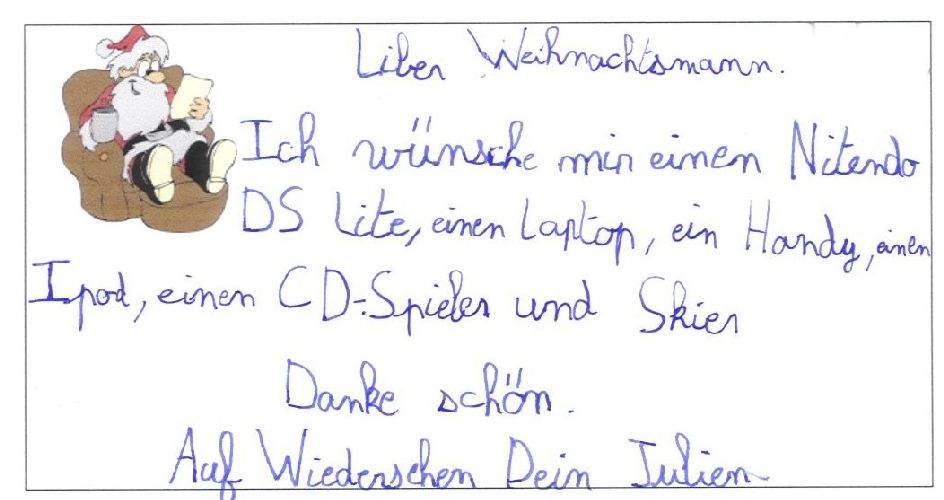 Liber Weihnachtsmann.
Ich wünsche mir einen Nitendo
DS Lite, einen Laptop, ein Handy, einen
Ipod, einen CD-Spieler und Skier
Danke schön.
Auf Wiedersehen Dein Julien